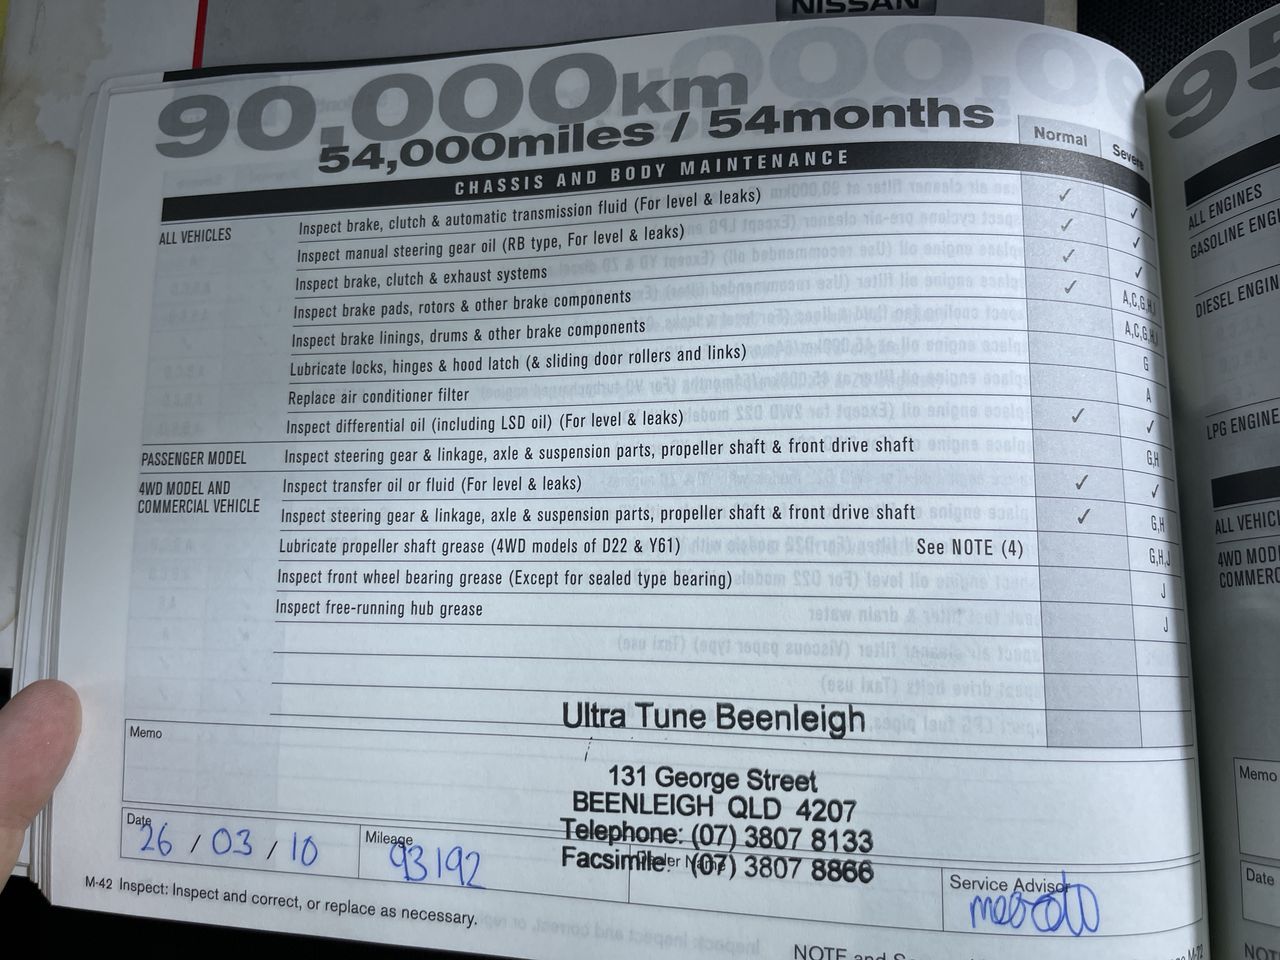 NISSAN
90,000km
54,000miles / 54months
Normal
Severe
CHASSIS AND BODY MAINTENANCE
ALL VEHICLES
Inspect brake, clutch & automatic transmission fluid (For level & leaks) ✓ ✓
Inspect manual steering gear oil (RB type, For level & leaks) ✓ ✓
Inspect brake, clutch & exhaust systems ✓ ✓
Inspect brake pads, rotors & other brake components ✓ A,C,G,H,J
Inspect brake linings, drums & other brake components A,C,G,H,J
Lubricate locks, hinges & hood latch (& sliding door rollers and links) G
Replace air conditioner filter A
Inspect differential oil (including LSD oil) (For level & leaks) ✓ ✓
PASSENGER MODEL
Inspect steering gear & linkage, axle & suspension parts, propeller shaft & front drive shaft G,H
4WD MODEL AND
COMMERCIAL VEHICLE
Inspect transfer oil or fluid (For level & leaks) ✓ ✓
Inspect steering gear & linkage, axle & suspension parts, propeller shaft & front drive shaft ✓ G,H
Lubricate propeller shaft grease (4WD models of D22 & Y61) See NOTE (4) G,H,J
Inspect front wheel bearing grease (Except for sealed type bearing) J
Inspect free-running hub grease J
Ultra Tune Beenleigh
131 George Street
BEENLEIGH QLD 4207
Telephone: (07) 3807 8133
Facsimile: (07) 3807 8866
Memo
Date
26 / 03 / 10
Mileage
93192
Dealer Name
Service Advisor
M-42 Inspect: Inspect and correct, or replace as necessary.
NOTE and
95
ALL ENGINES
GASOLINE ENG
DIESEL ENGIN
LPG ENGINE
ALL VEHIC
4WD MODE
COMMERC
Memo
Date
NOT